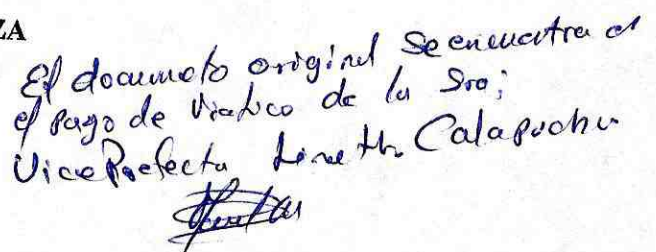 ZA
El documeto original Se encuentra en
el pago de Viatico de la Sra;
Vice Prefecta Lineth Calapucha